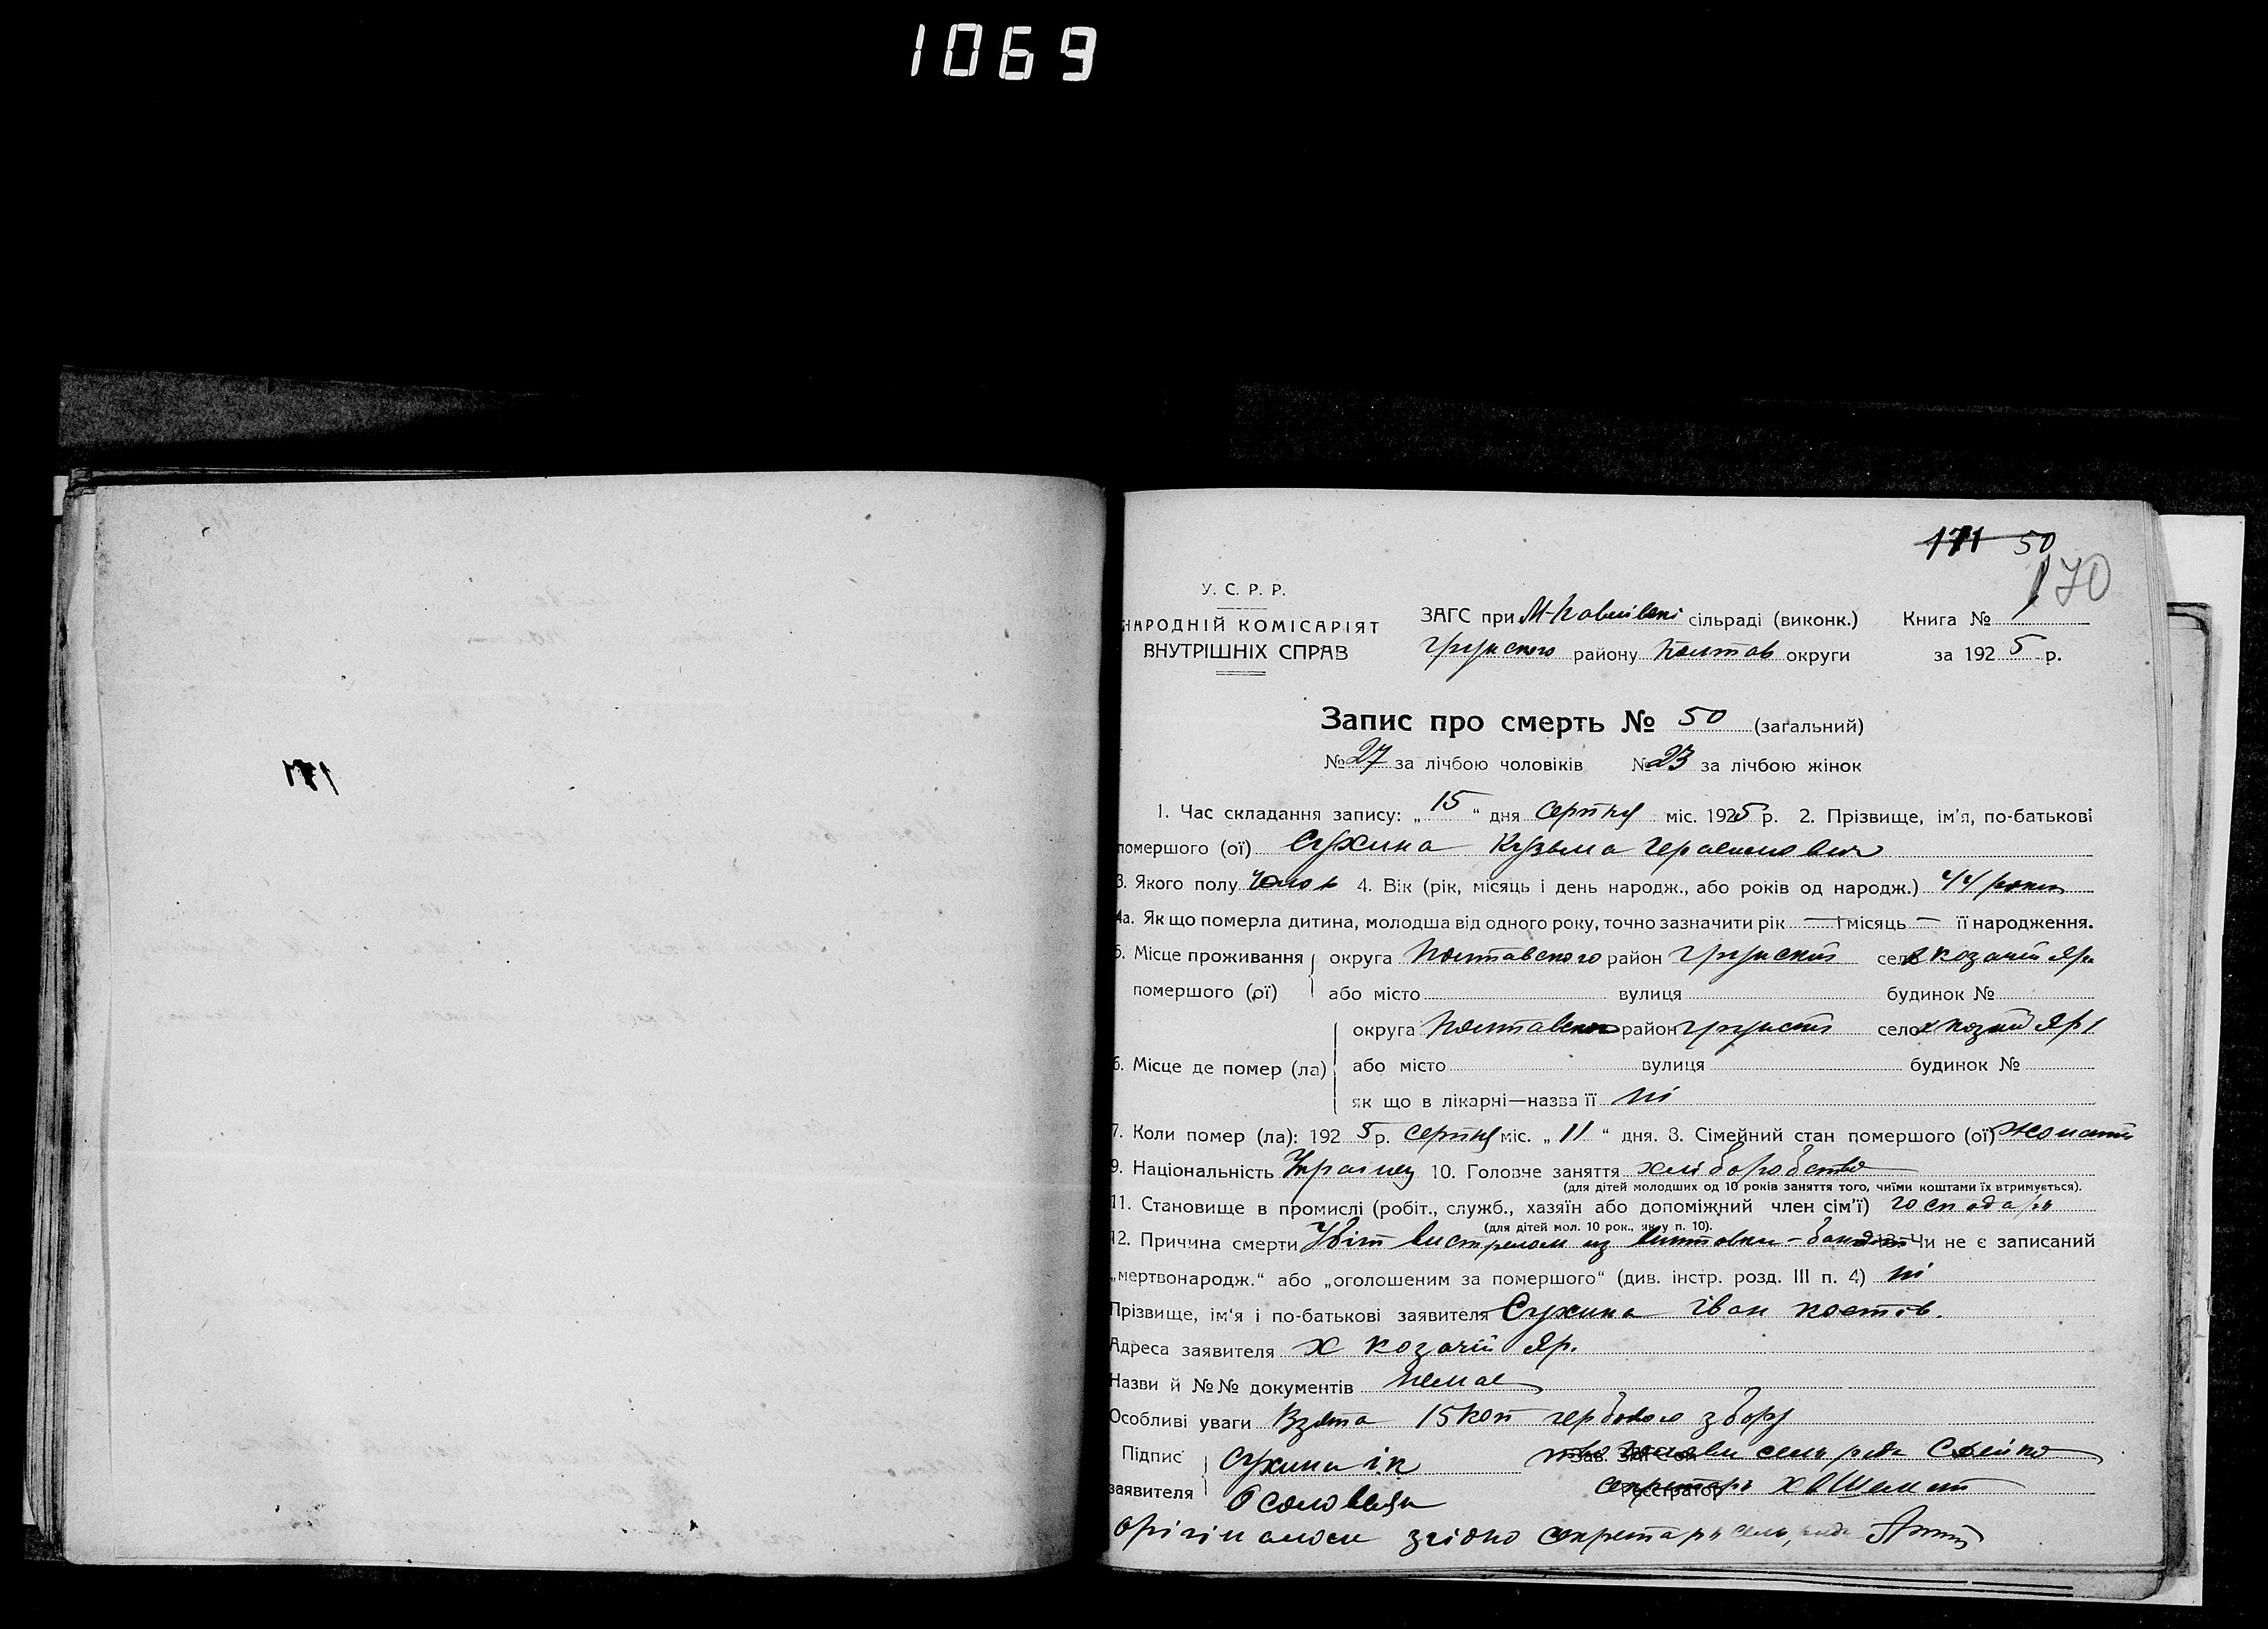 1069
171 50
170
У. С. Р. Р.
НАРОДНІЙ КОМІСАРІЯТ
ВНУТРІШНІХ СПРАВ
ЗАГС при сільраді (виконк.) Книга № 1
району Полтав округи за 1925 р.
Запис про смерть № 50 (загальний)
№ 27 за лічбою чоловіків № 23 за лічбою жінок
1. Час складання запису: „15“ дня серпня міс. 1925 р. 2. Прізвище, ім'я, по-батькові
помершого (ої) Сухина Кузьма Герасимович
3. Якого полу 4. Вік (рік, місяць і день народж., або років од народж.) 44 роки
4а. Як що померла дитина, молодша від одного року, точно зазначити рік — і місяць — її народження.
5. Місце проживання округа Полтавского район село х козачій Яр
помершого (ої) або місто вулиця будинок №
округа Полтавского район село х Яр
6. Місце де помер (ла) або місто вулиця будинок №
як що в лікарні—назва її ні
7. Коли помер (ла): 1925 р. серпня міс. „11“ дня. 8. Сімейний стан помершого (ої) жонатий
9. Національність Украінец 10. Головне заняття хліборобство
(для дітей молодших од 10 років заняття того, чиїми коштами їх втримується).
11. Становище в промислі (робіт., служб., хазяїн або допоміжний член сім'ї) господарь
(для дітей мол. 10 рок., як у п. 10).
12. Причина смерти Убіт вистрелом из винтовки - 13. Чи не є записаний
„мертвонародж.“ або „оголошеним за помершого“ (див. інстр. розд. III п. 4) ні
Прізвище, ім'я і по-батькові заявителя Сухина Іван костів.
Адреса заявителя х козачій Яр.
Назви й №№ документів немае
Особливі уваги Взята 15 коп гербового збору
Підпис Сухина і.к Зав. ЗАГС'ом голови сельради
заявителя Реєстратор секретарь
згідно секретарь сельради
171